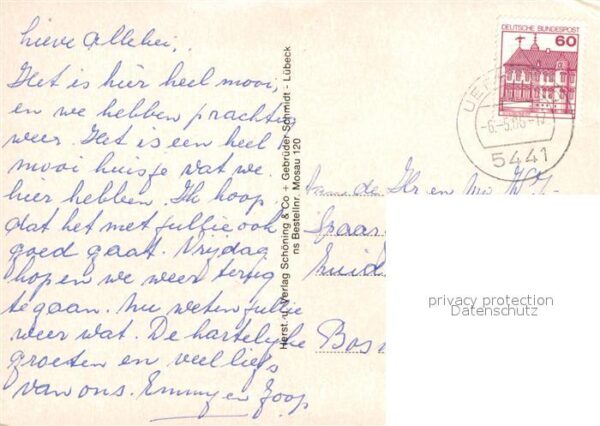 Lieve Allebei,
Het is hier heel mooi,
en we hebben prachtig
weer. Het is een heel
mooi huisje dat we
hier hebben. Ik hoop
dat het met jullie ook
goed gaat. Vrijdag
hopen we weer terug
te gaan. Nu weten jullie
weer wat. De hartelijke
groeten en veel liefs
van ons. Emmy en Joop
Herst. u. Verlag Schöning & Co + Gebrüder Schmidt - Lübeck
ns Bestellnr. Mosau 120
DEUTSCHE BUNDESPOST
60
5441
aan de Hr en
privacy protection
Datenschutz